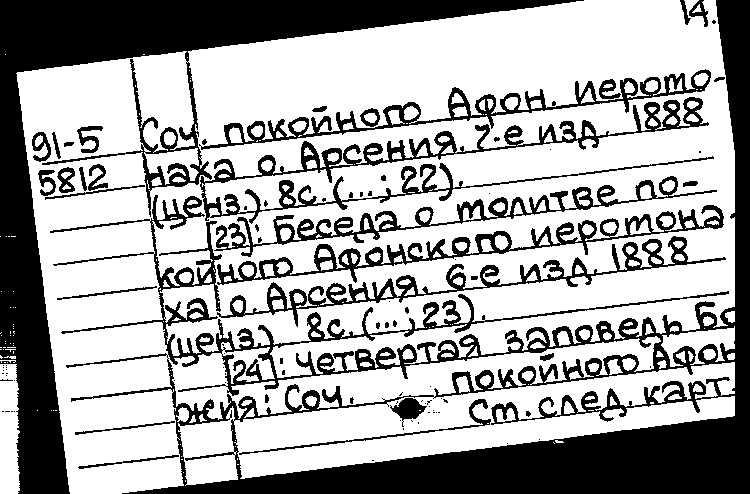 14.
91-5 Соч. покойного Афон. иеромо-
5812 наха о. Арсения. 7-е изд. 1888
(ценз.). 8с. (...; 22).
[23]: Беседа о молитве по-
койного Афонского иеромона-
ха о. Арсения. 6-е изд. 1888
(ценз.). 8с. (...; 23).
[24]: Четвертая заповедь Бо
жия: Соч. , покойного Афон
См. след. карт.